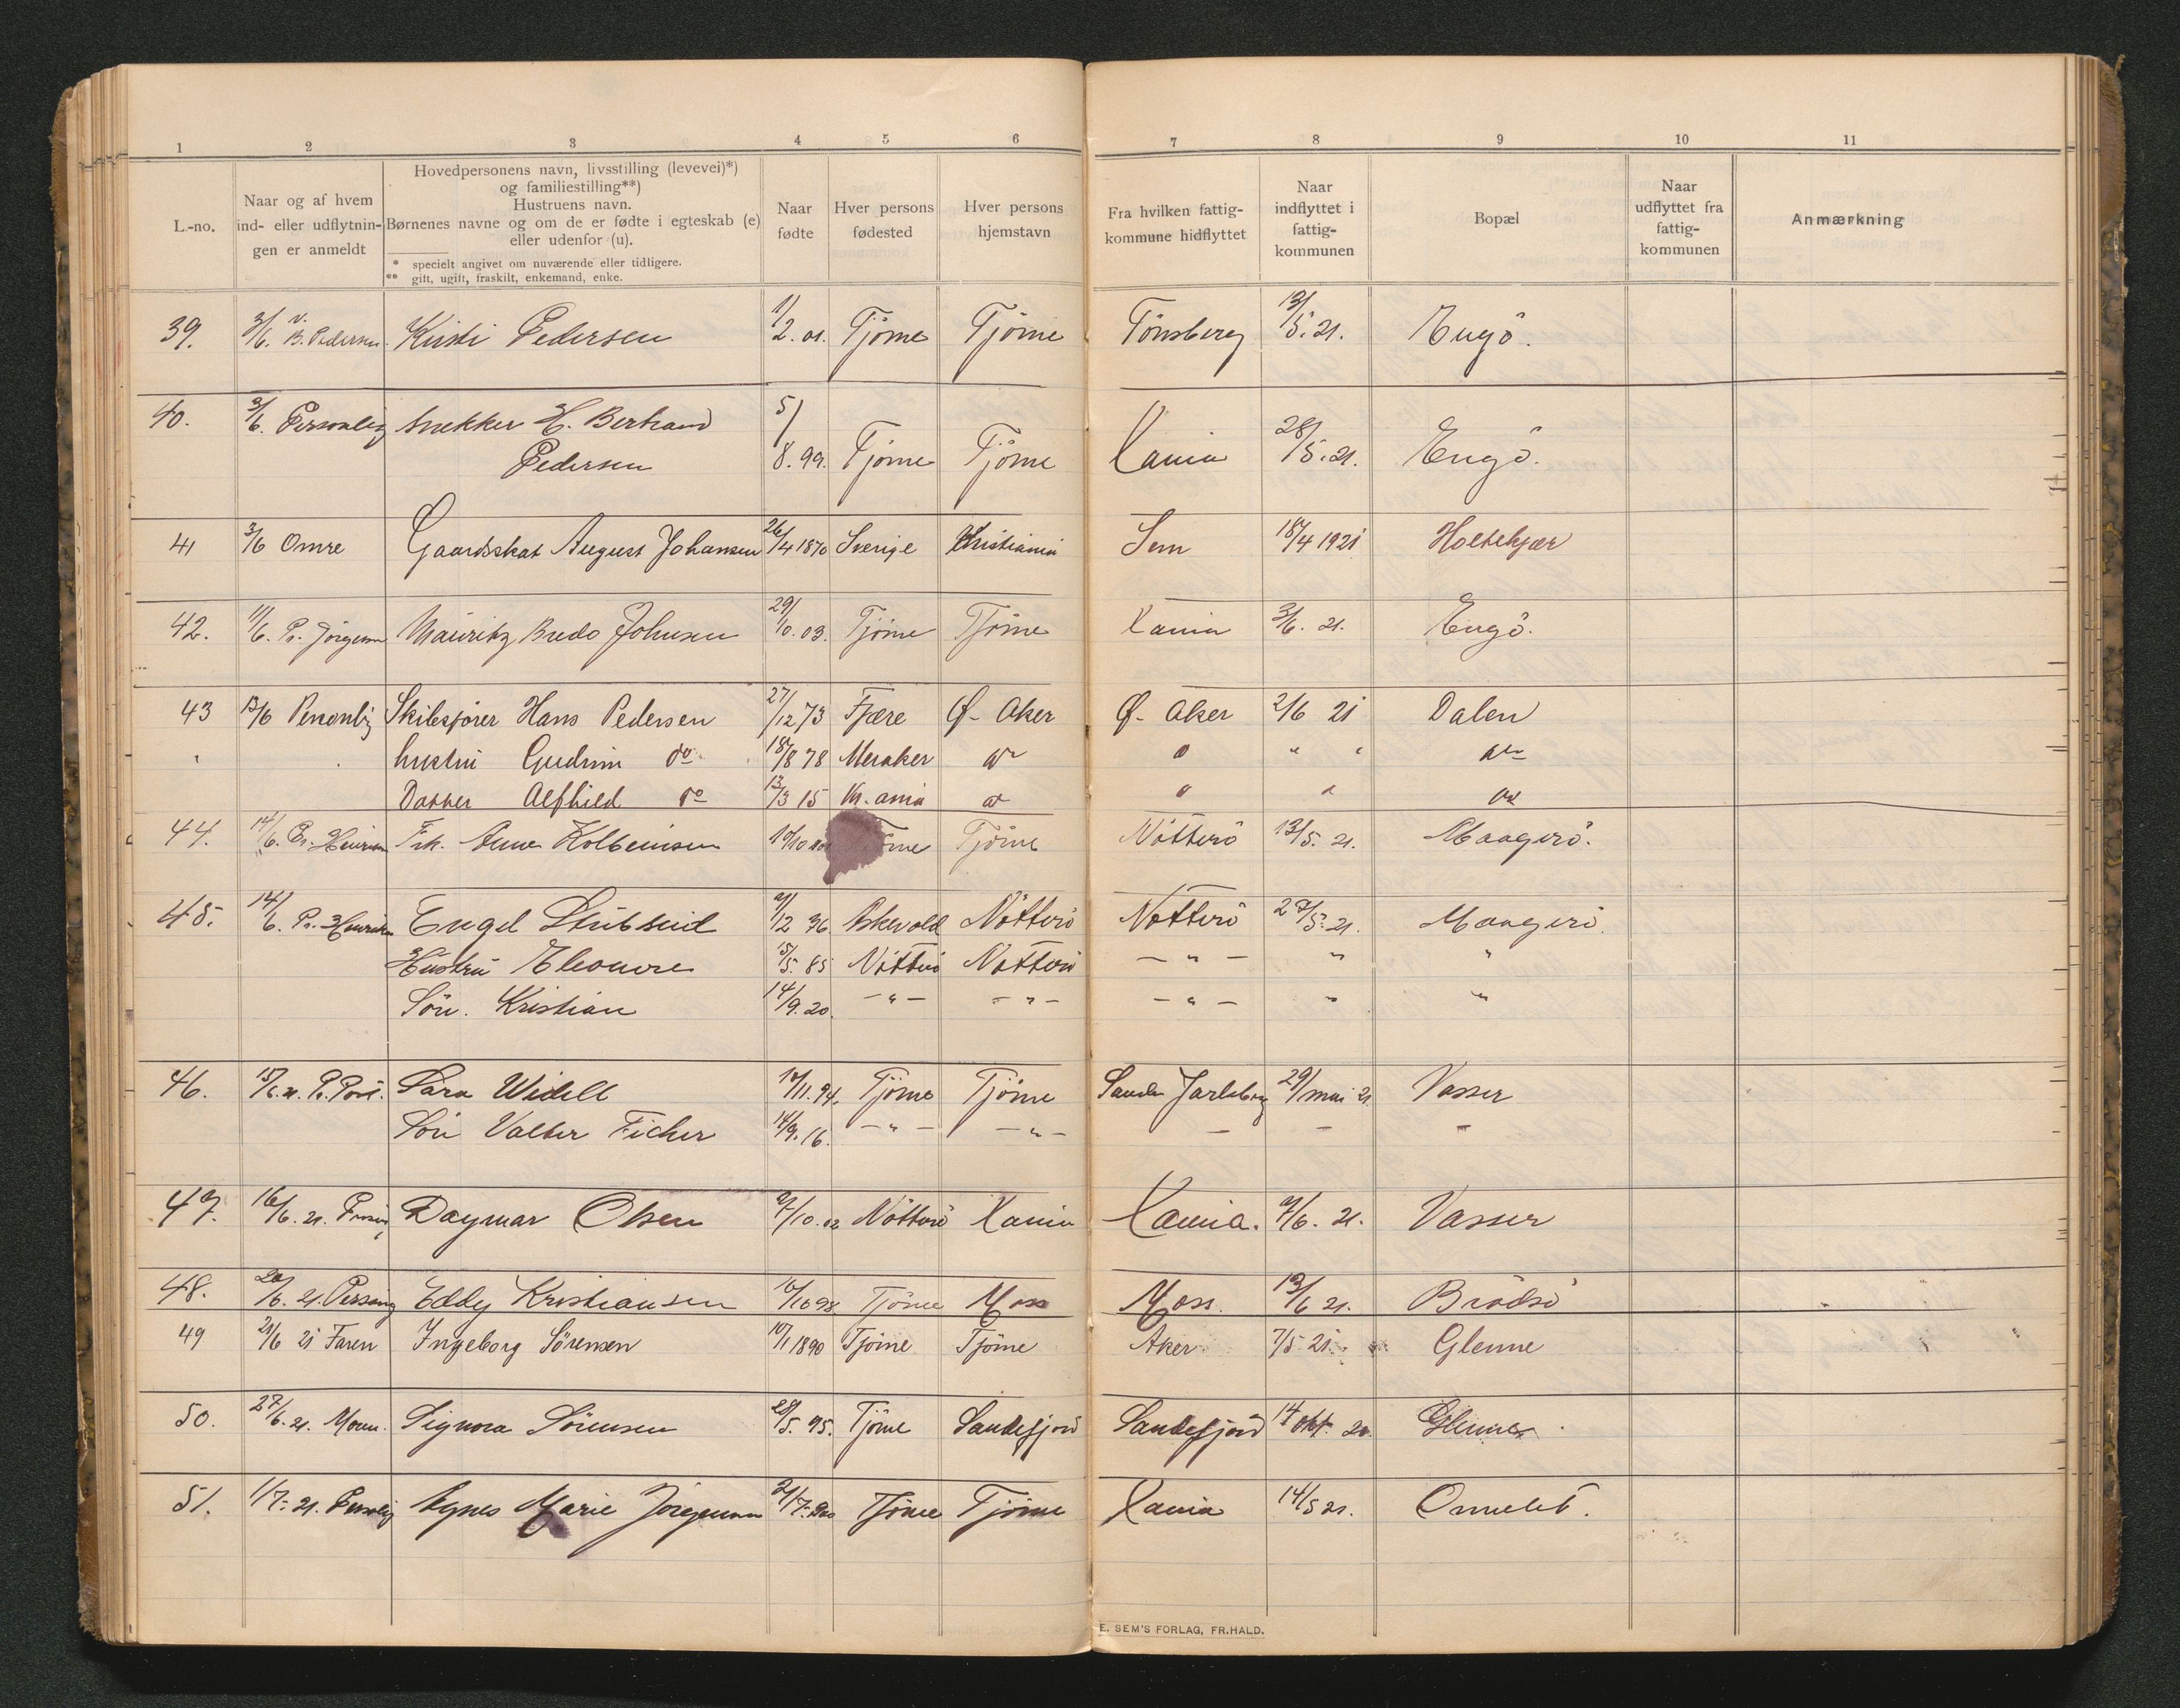 1 2 3 4 5 6 7 8 9 10 11
L.-no.
Naar og af hvem
ind- eller udflytnin-
gen er anmeldt
Hovedpersonens navn, livsstilling (levevei)*)
og familiestilling**)
Hustruens navn.
Børnenes navne og om de er fødte i egteskab (e)
eller udenfor (u).
* specielt angivet om nuværende eller tidligere.
** gift, ugift, fraskilt, enkemand, enke.
Naar
fødte
Hver persons
fødested
Hver persons
hjemstavn
Fra hvilken fattig-
kommune hidflyttet
Naar
indflyttet i
fattig-
kommunen
Bopæl
Naar
udflyttet fra
fattig-
kommunen
Anmærkning
39. 3/6. v. B. Pedersen Kirsti Pedersen 1/2.01. Tjöme Tjöme Tönsberg 13/5.21. Engö.
40. 3/6. Personlig Snekker H. Bertrand 5/
Pedersen 8.99. Tjöme Tjöme Xania 28/5.21. Engö.
41 3/6 Omre Gaardsskat August Johansen 26/4 1870 Sverige Kristiania Sem 18/4 1921 Holtekjær
42. 11/6. Pr. Jörgensen Mauritz Bredo Johnsen 29/10.03. Tjöme Tjöme Xania 3/6. 21. Engö.
43 13/6 Personlig Skibsfører Hans Pedersen 27/12 73 Fjære Ø- Aker Ø- Aker 2/6 21 Dalen
" hustru Gudrun do 18/8 78 Meraker do " " " do
Datter Alfhild do 13/3 15 Kr.ania do " " do
44. 14/6. Pr. Henriksen Frk. Anna Kolbeinsen 10/10 Tjöme Tjöme Nötterö 13/5. 21. Maagerö.
45. 14/6. Pr. Henriksen Engel Stubseid 9/12 96 Askvold Nötterö Nötterö 27/5. 21. Maagerö.
Hustru Eleonore 15/5. 85 Nötterö Nötterö — " — " "
Sön. Kristian 14/9. 20. — " — — " — — " — " "
46. 15/6.21. P. Post. Sara Widell 10/11.94. Tjöme Tjöme Sanden Jarlsberg 29/mai 21 Vasser
Sön Valter Ficher 14/9.16. — " — — " — — — —
47. 16/6. 21. Dagmar Olsen 7/10.02 Nötterö Xania Xania. 9/6. 21. Vasser
48. 20/6. 21. Eddy Kristiansen 16/10 98 Tjöme Moss Moss. 13/6 21. Brödsö
49 21/6 21 Faren Ingeborg Sörensen 10/1 1890 Tjöme Tjöme Aker 7/5 21. Glenne
50. 27/6. 21. Moren. Signora Sörensen 28/5. 95. Tjöme Sandefjord Sandefjord 14 okt. 20. Glenne
51. 1/7. 21. Personlig Agnes Marie Jörgensen 21/7. 900 Tjöme Tjöme Xania 14/5 21. Ormelet.
E. SEM'S FORLAG, FR.HALD.